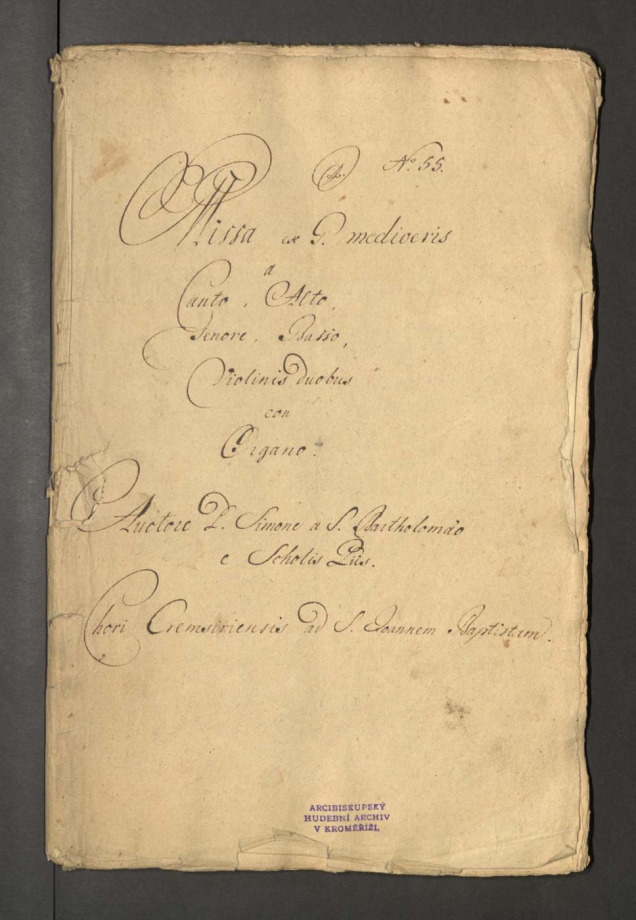 No. 55.
Missa ex G. mediocris
a
Canto, Alto,
Tenore, Basso,
Violinis Duobus
con
Organo.
Auctore P. Simone a S. Bartholomæo
e Scholis Piis.
Chori Cremsiriensis ad S. Joannem Baptistam.
ARCIBISKUPSKÝ
HUDEBNÍ ARCHIV
V KROMĚŘÍŽI.